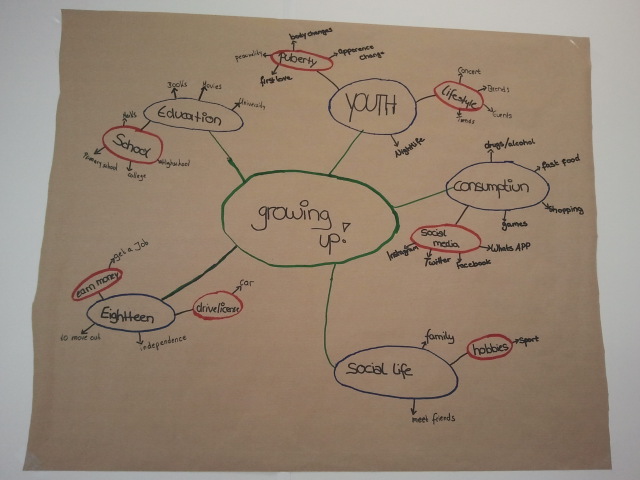 body changes
puberty
Apperence
change
first love
YOUTH
Concert
Lifestyle
Brends
Nightlife
Books
Movies
University
Education
School
Primary school
college
drugs/alcohol
fast food
consumption
shopping
games
social
media
Instagram
Twitter
Facebook
Whats APP
growing
up!
get a Job
earn money
car
drivelicense
Eighteen
to move out
independence
family
hobbies
sport
social life
meet friends